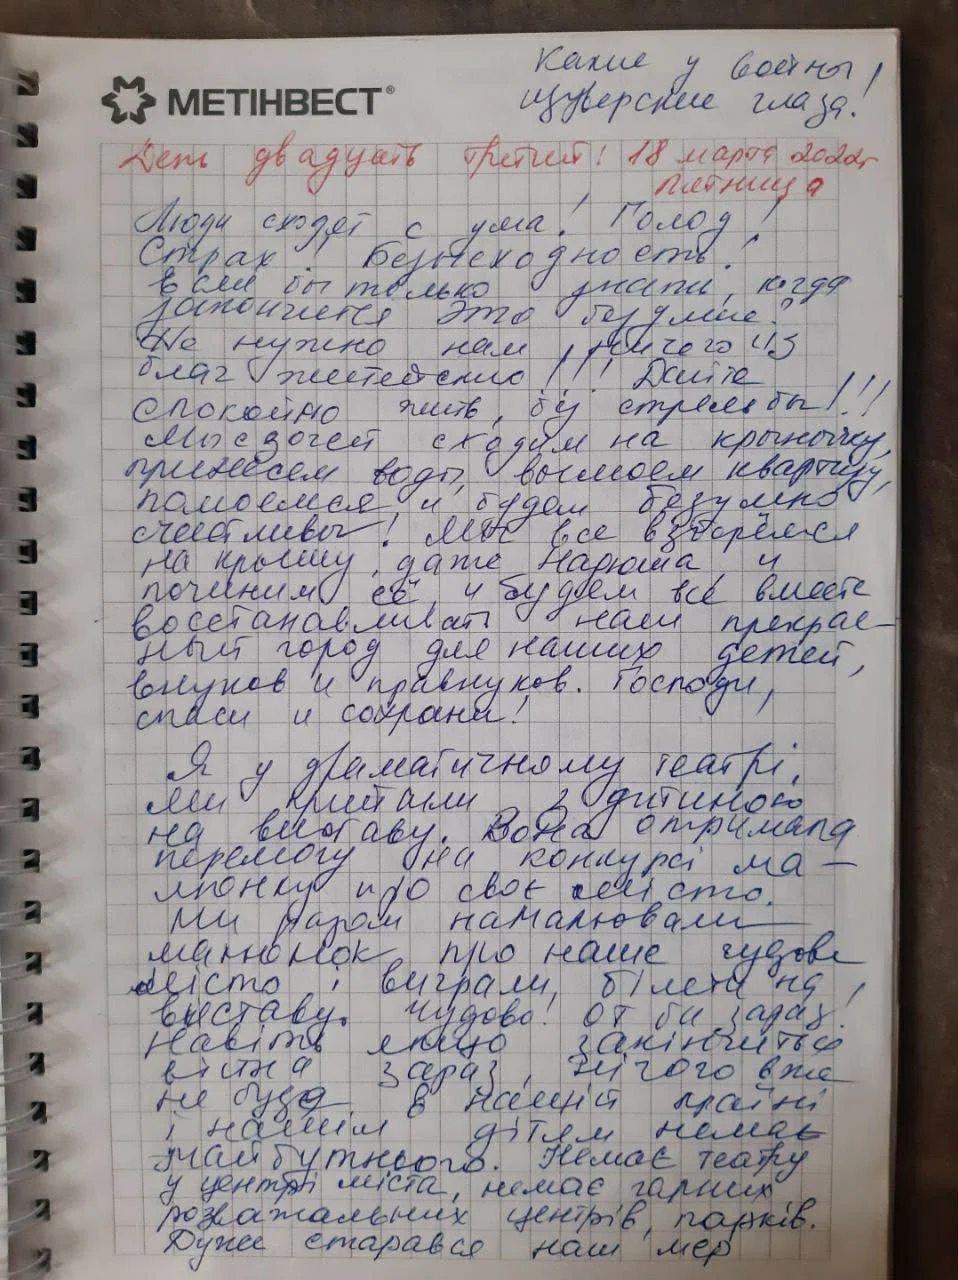 Какие у войны
изуверские глаза!
МЕТІНВЕСТ®
День двадцать третий! 18 марта 2022г
пятница
Люди сходят с ума! Голод!
Страх! Безысходность!
Если бы только знали, когда
закончится это безумие?
Не нужно нам ничего из
благ житейских!!! Дайте
спокойно жить, без стрельбы!!!
Мы с дочей сходим на крыничку,
принесем воды, вымоем квартиру,
помоемся и будем безумно
счастливы! Мы все взберёмся
на крышу, даже Надюша и
починим её, и будем все вместе
восстанавливать наш прекрас-
ный город для наших детей,
внуков и правнуков. Господи,
спаси и сохрани!
Я у драматичному театрі,
ми прийшли з дитиною
на виставу. Вона отримала
перемогу на конкурсі ма-
люнку про своє місто.
Ми разом намалювали
малюнок про наше чудове
місто і виграли білети на
виставу. Чудово! От би зараз!
Навіть якщо закінчиться
війна зараз, нічого вже
не буде в нашій країні
і нашим дітям немає
майбутнього. Немає театру
у центрі міста, немає гарних
розважальних центрів, парків.
Дуже старався наш мер